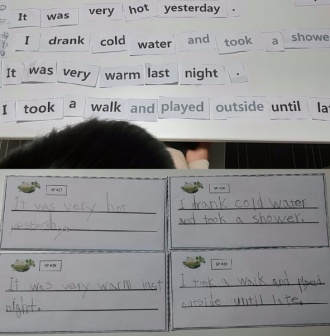 It was very hot yesterday .
I drank cold water and took a showe
It was very warm last night .
I took a walk and played outside until la
It was very hot
yesterday.
I drank cold water
and took a shower.
It was very warm last
night.
I took a walk and played
outside until late.